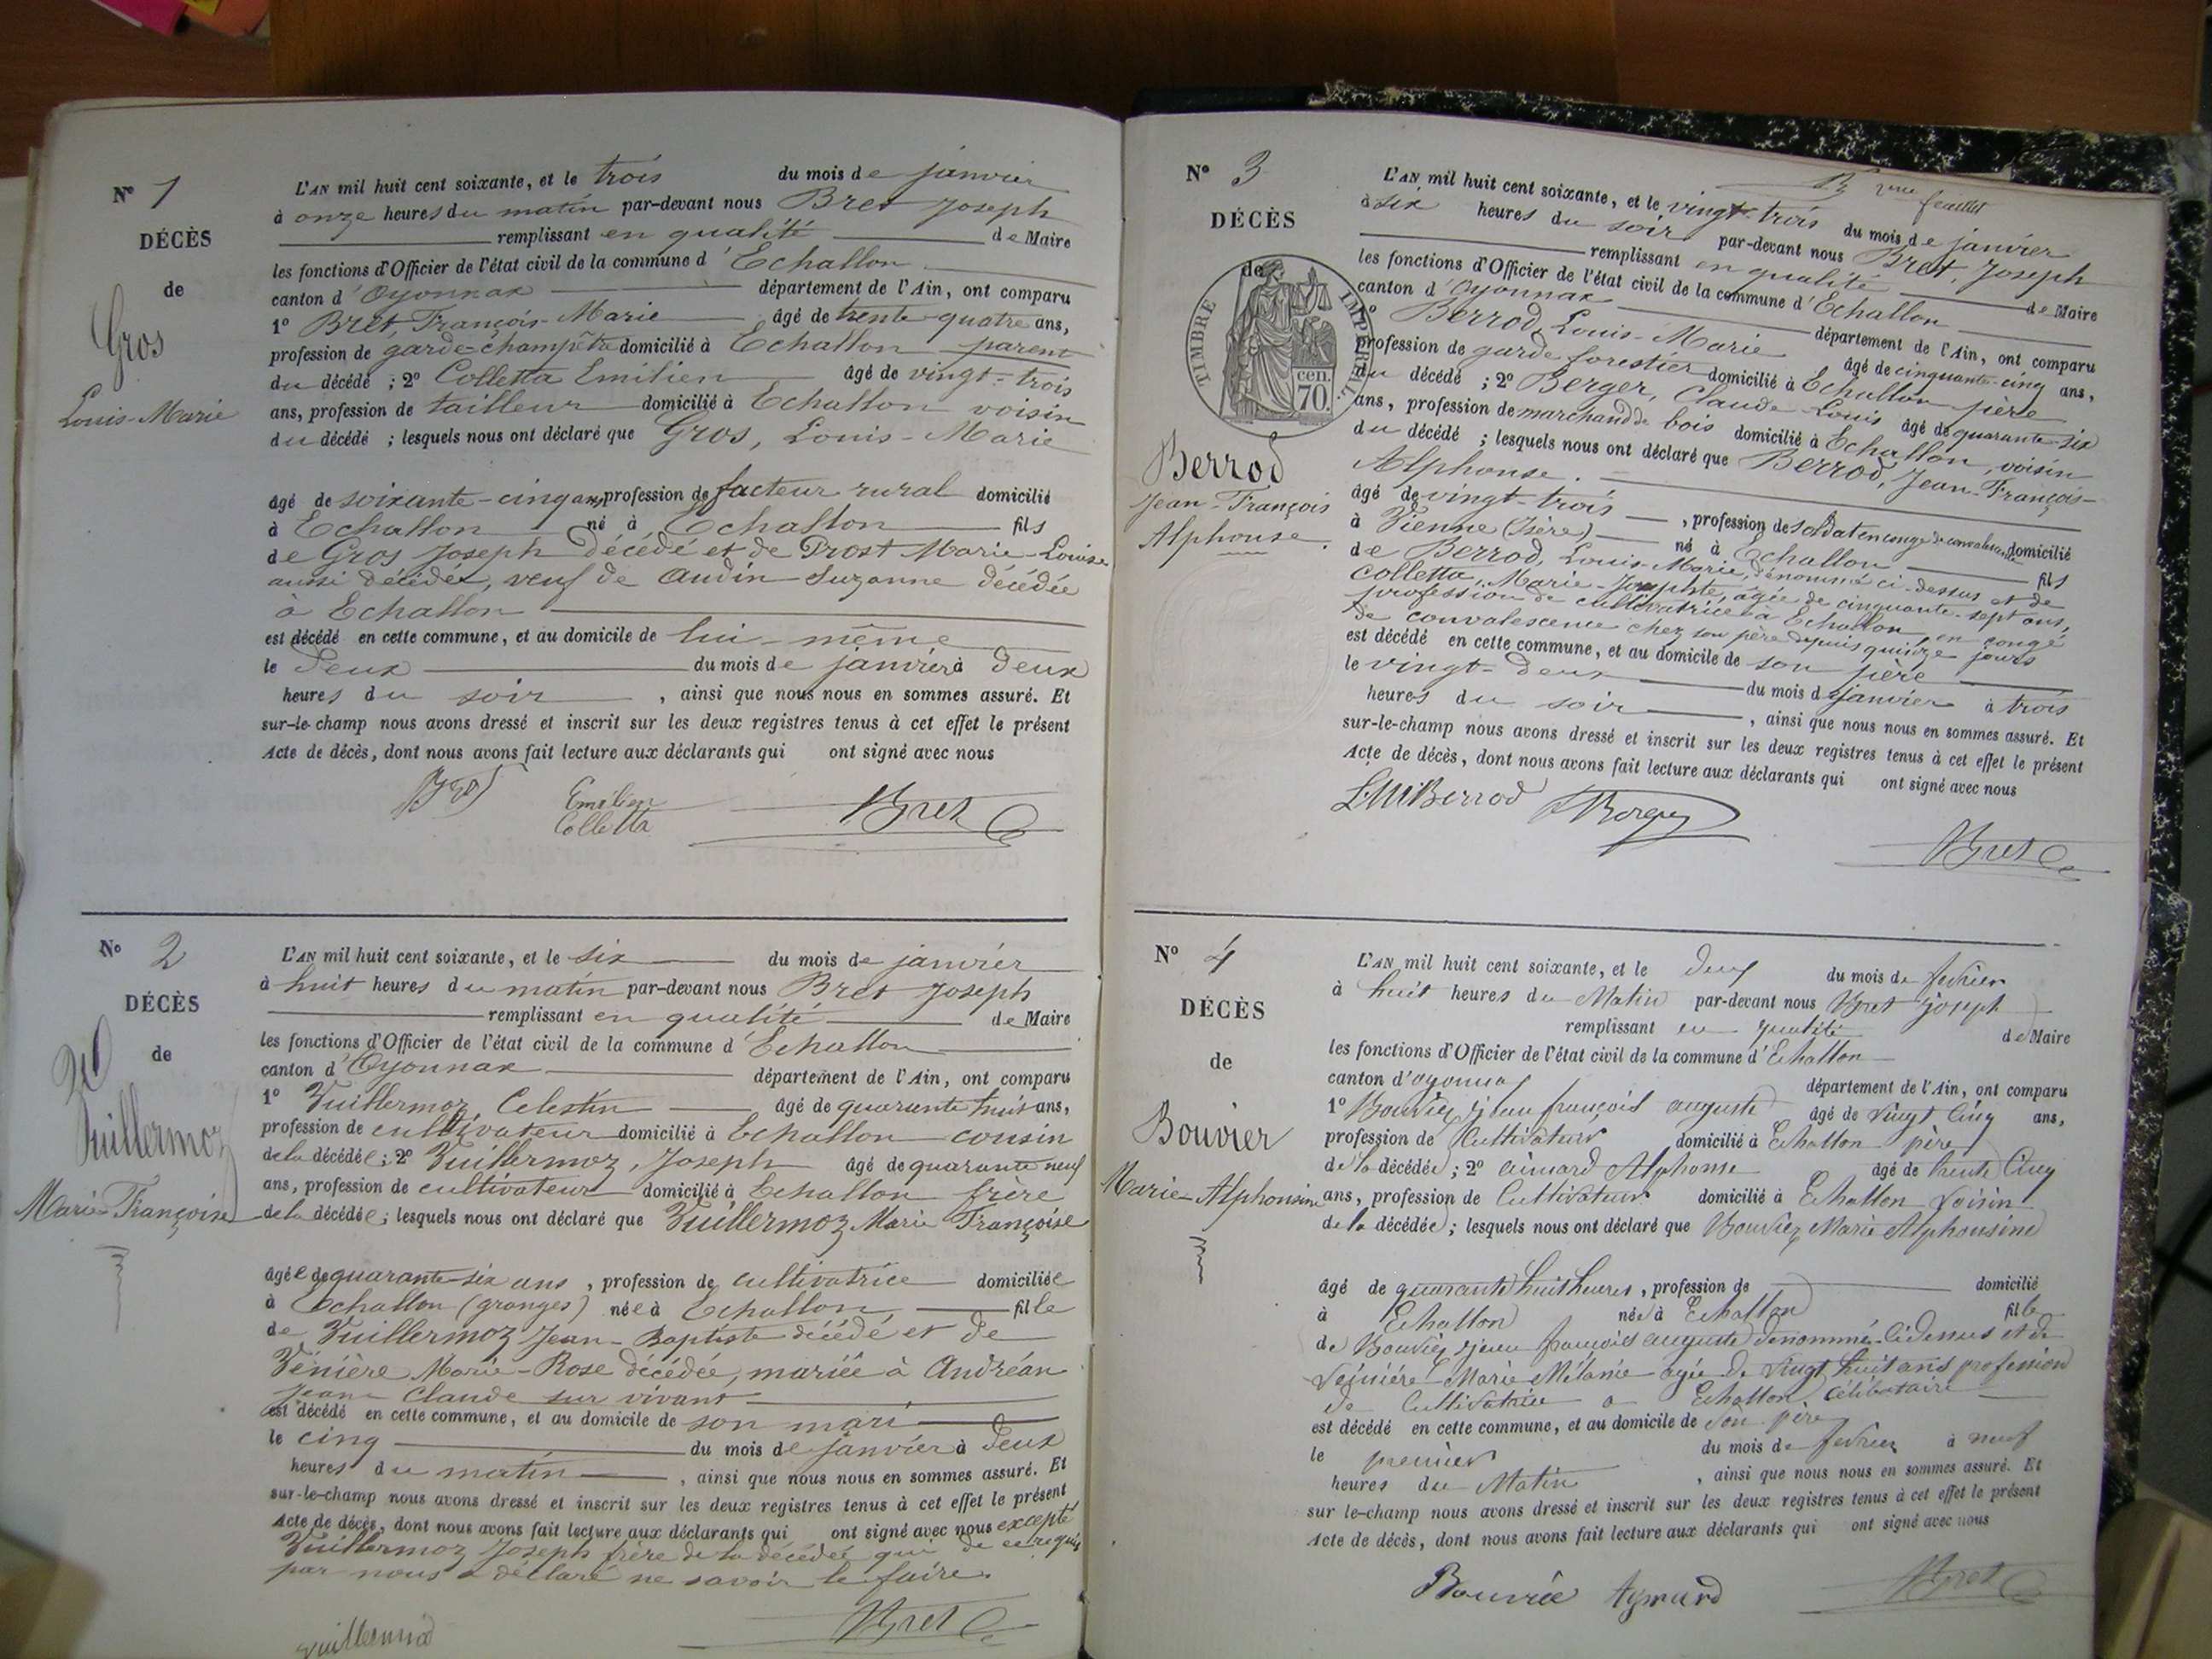 N° 1
DÉCÈS
de
Gros
Louis-Marie
L'AN mil huit cent soixante, et le trois du mois de janvier
à onze heures du matin par-devant nous Bret Joseph
remplissant en qualité de Maire
les fonctions d'Officier de l'état civil de la commune d'Echallon
canton d'Oyonnax département de l'Ain, ont comparu
1° Bret, François-Marie âgé de trente-quatre ans,
profession de garde-champêtre domicilié à Echallon parent
du décédé ; 2° Colletta Emilien âgé de vingt-trois
ans, profession de tailleur domicilié à Echallon voisin
du décédé ; lesquels nous ont déclaré que Gros, Louis-Marie
âgé de soixante-cinq ans, profession de facteur rural domicilié
à Echallon né à Echallon fils
de Gros Joseph décédé et de Prost Marie-Louise
aussi décédée, veuf de Audin Suzanne décédée
à Echallon
est décédé en cette commune, et au domicile de lui-même
le deux du mois de janvier à deux
heures du soir, ainsi que nous nous en sommes assuré. Et
sur-le-champ nous avons dressé et inscrit sur les deux registres tenus à cet effet le présent
Acte de décès, dont nous avons fait lecture aux déclarants qui ont signé avec nous
Emilien
Colletta
Bret
N° 2
DÉCÈS
de
Vuillermoz
Marie Françoise
L'AN mil huit cent soixante, et le six du mois de janvier
à huit heures du matin par-devant nous Bret Joseph
remplissant en qualité de Maire
les fonctions d'Officier de l'état civil de la commune d'Echallon
canton d'Oyonnax département de l'Ain, ont comparu
1° Vuillermoz, Celestin âgé de quarante huit ans,
profession de cultivateur domicilié à Echallon cousin
de la décédée ; 2° Vuillermoz, Joseph âgé de quarante neuf
ans, profession de cultivateur domicilié à Echallon frère
de la décédée ; lesquels nous ont déclaré que Vuillermoz Marie Françoise
âgée de quarante-six ans, profession de cultivatrice domiciliée
à Echallon (granges) née à Echallon, fille
de Vuillermoz Jean-Baptiste décédé et de
Vénière Marie-Rose décédée, mariée à Andréan
Jean Claude sur vivant
est décédé en cette commune, et au domicile de son mari
le cinq du mois de janvier à deux
heures du matin, ainsi que nous nous en sommes assuré. Et
sur-le-champ nous avons dressé et inscrit sur les deux registres tenus à cet effet le présent
Acte de décès, dont nous avons fait lecture aux déclarants qui ont signé avec nous excepté
Vuillermoz Joseph frère de la décédée qui de ce requis
par nous a déclaré ne savoir le faire.
Bret
N° 3
DÉCÈS
de
TIMBRE IMPÉRIAL
70 cen.
Berrod
Jean-François
Alphonse.
feuillet
L'AN mil huit cent soixante, et le vingt-trois du mois de janvier
à six heures du soir par-devant nous Bret, Joseph
remplissant en qualité de Maire
les fonctions d'Officier de l'état civil de la commune d'Echallon
canton d'Oyonnax département de l'Ain, ont comparu
1° Berrod, Louis-Marie âgé de cinquante-cinq ans,
profession de garde forestier domicilié à Echallon père
du décédé ; 2° Berger, Claude-Louis âgé de quarante-six
ans, profession de marchand de bois domicilié à Echallon, voisin
du décédé ; lesquels nous ont déclaré que Berrod, Jean-François-
Alphonse.
âgé de vingt-trois, profession de soldat en congé de convalescence domicilié
à Vienne (Isère) né à Echallon fils
de Berrod, Louis-Marie, dénommé ci-dessus et de
Colletta, Marie-Josephte, agée de cinquante-sept ans,
profession de cultivatrice à Echallon, en congé
de convalescence chez son père depuis quinze jours
est décédé en cette commune, et au domicile de son père
le vingt-deux du mois de janvier à trois
heures du soir, ainsi que nous nous en sommes assuré. Et
sur-le-champ nous avons dressé et inscrit sur les deux registres tenus à cet effet le présent
Acte de décès, dont nous avons fait lecture aux déclarants qui ont signé avec nous
L.M Berrod
Bret
N° 4
DÉCÈS
de
Bouvier
Marie-Alphonsine
L'AN mil huit cent soixante, et le deux du mois de fevrier
à huit heures du Matin par-devant nous Bret Joseph
remplissant en qualité de Maire
les fonctions d'Officier de l'état civil de la commune d'Echallon
canton d'oyonnax département de l'Ain, ont comparu
1° Bouvier jean françois auguste âgé de vingt cinq ans,
profession de Cultivateur domicilié à Echallon père
de la décédée ; 2° aimard Alphonse âgé de trente cinq
ans, profession de Cultivateur domicilié à Echallon voisin
de la décédée ; lesquels nous ont déclaré que Bouvier Marie Alphonsine
âgé de quarante huit heures, profession de domicilié
à Echallon née à Echallon fille
de Bouvier jean françois auguste denommé cidessus et de
Veinière Marie Mélanie agée de vingt huit ans profession
de Cultivatrice a Echallon célibataire
est décédé en cette commune, et au domicile de son père
le premier du mois de fevrier à neuf
heures du Matin, ainsi que nous nous en sommes assuré. Et
sur le-champ nous avons dressé et inscrit sur les deux registres tenus à cet effet le présent
Acte de décès, dont nous avons fait lecture aux déclarants qui ont signé avec nous
Bouvié Aymard
Bret